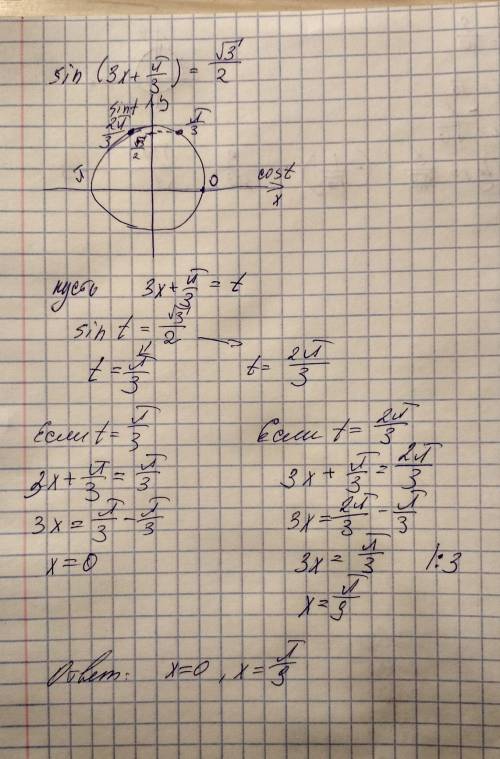 sin (3x + π/3) = √3/2
sint ↑ y
2π/3 π/3
√3/2
π 0 cost
x
пусть 3x + π/3 = t
sin t = √3/2
t = π/3 t = 2π/3
Если t = π/3 Если t = 2π/3
3x + π/3 = π/3 3x + π/3 = 2π/3
3x = π/3 - π/3 3x = 2π/3 - π/3
x = 0 3x = π/3 |:3
x = π/9
Ответ: x=0, x = π/9